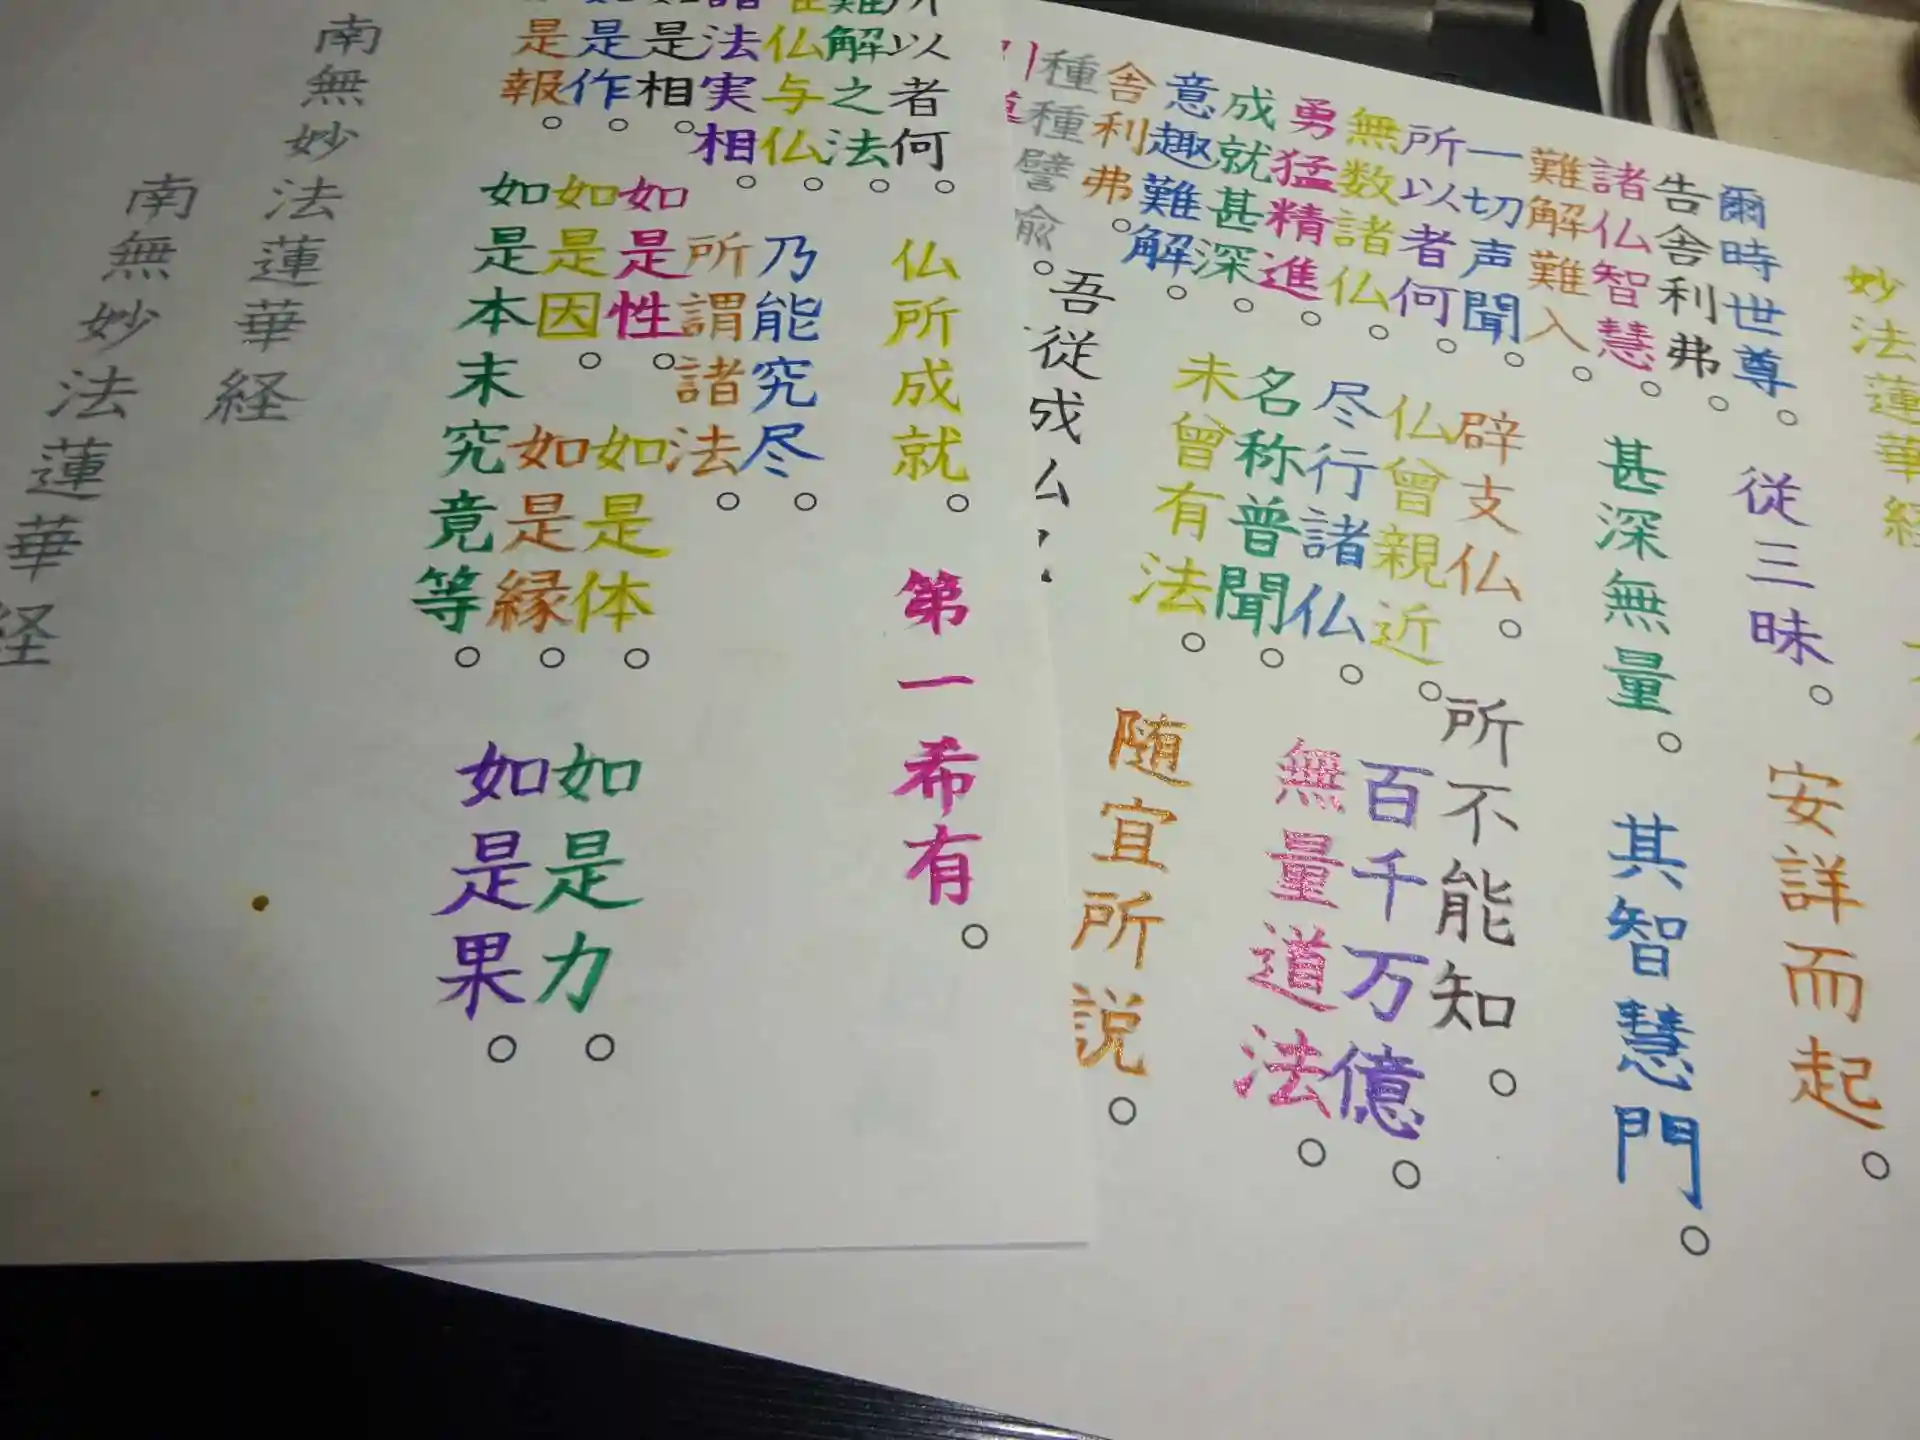 妙法蓮華経
爾時世尊。従三昧。安詳而起。
告舎利弗。
諸仏智慧。甚深無量。其智慧門。
難解難入。
一切声聞。辟支仏。所不能知。
所以者何。仏曾親近。百千万億
無数諸仏。尽行諸仏。無量道法。
勇猛精進。名称普聞。
成就甚深。未曾有法。
意趣難解。随宜所説。
舎利弗。吾従成
種種譬喩。
所以者何。仏所成就。第一希有。
難解之法。
仏与仏。乃能究尽。
諸法実相。所謂諸法。
如是相。如是性。如是体。如是力。
如是作。如是因。如是縁。如是果。
如是報。如是本末究竟等。
南無妙法蓮華経
南無妙法蓮華経